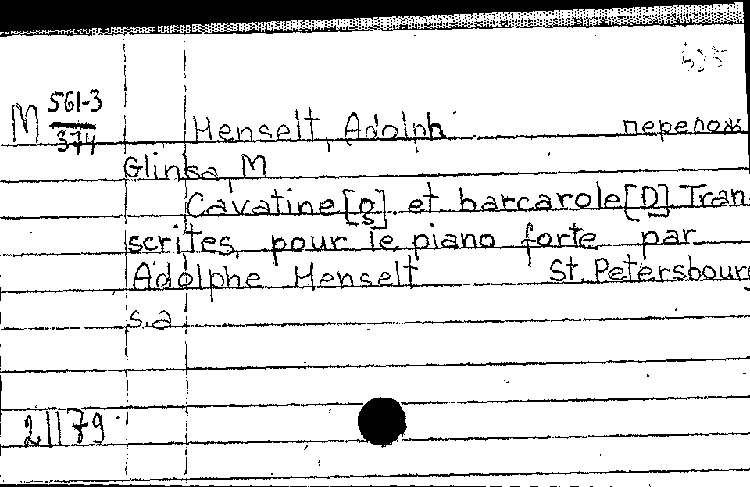 M 561-3
374
Henselt, Adolph перелож
Glinka, M
Cavatine [g] et barcarole [D] Tran-
scrites pour le piano forte par
Adolphe Henselt St. Petersbourg
s.a
21179